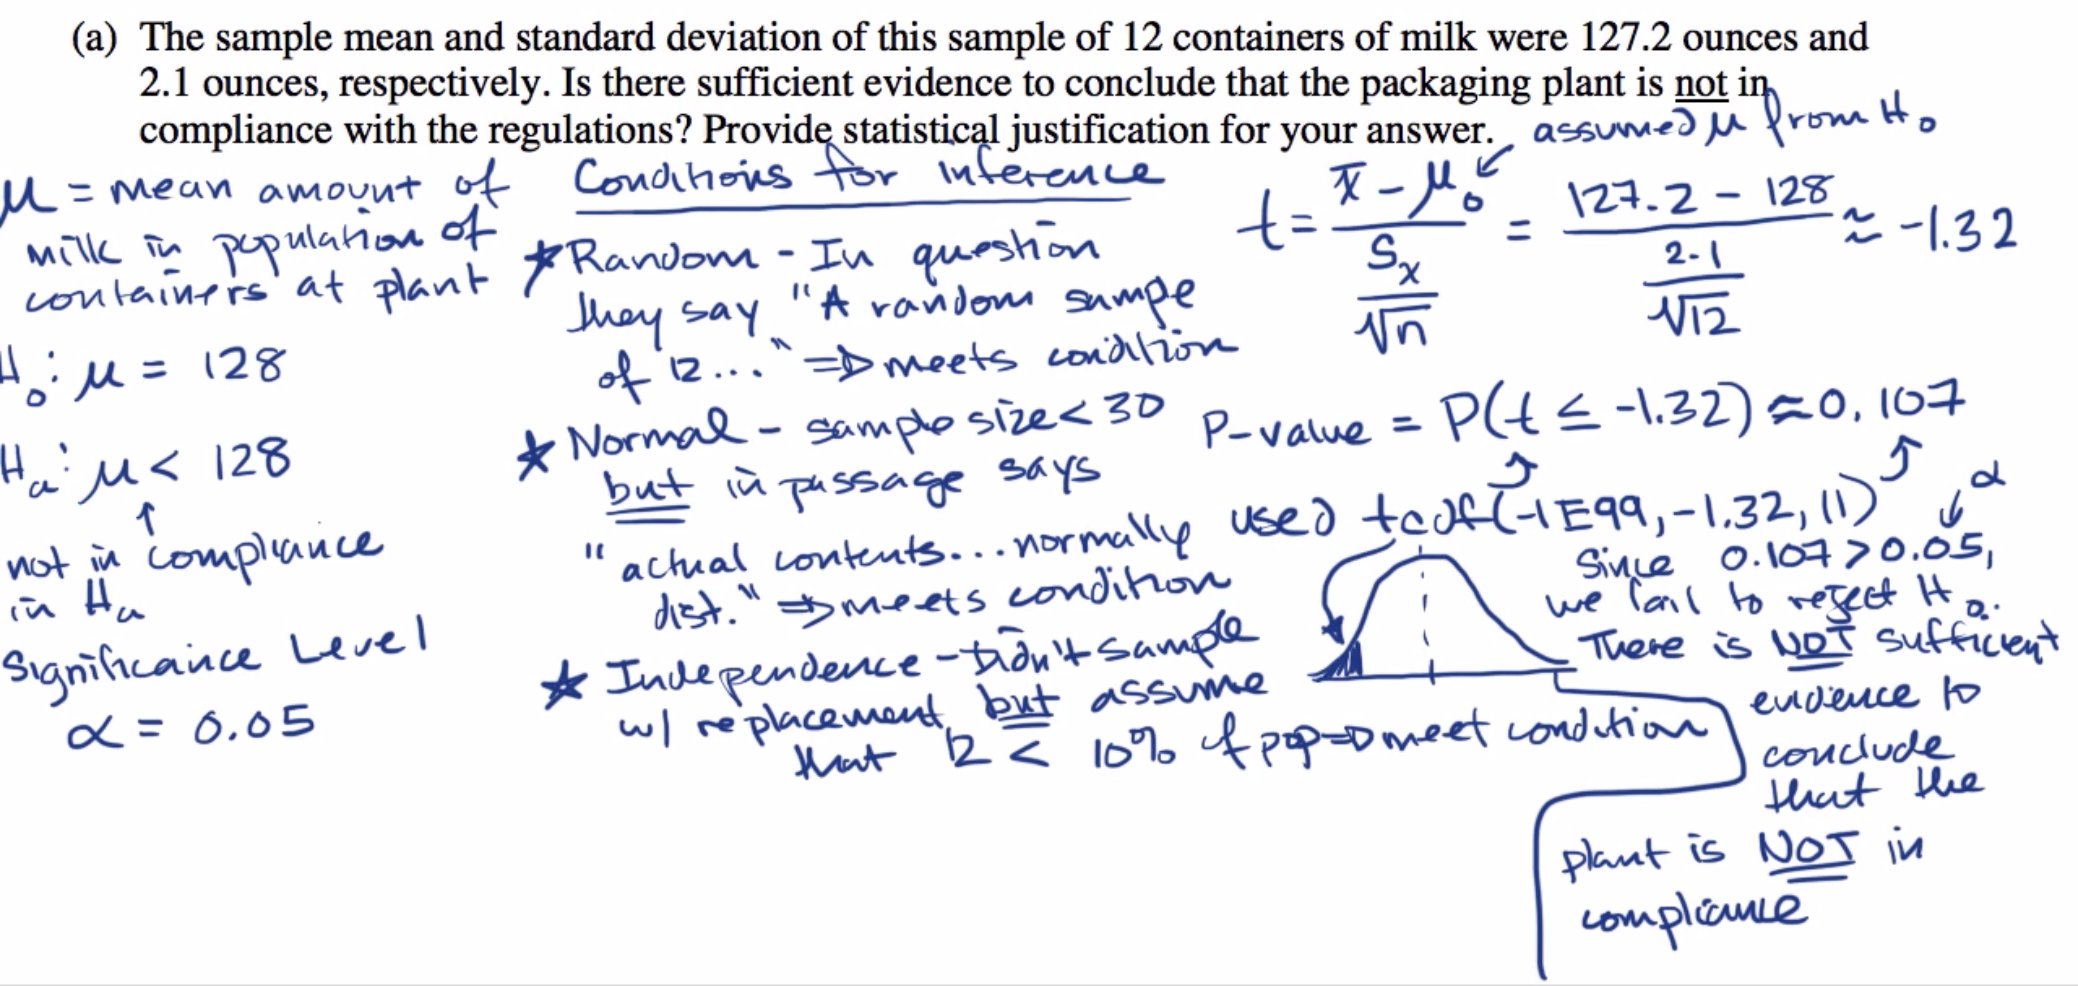 (a) The sample mean and standard deviation of this sample of 12 containers of milk were 127.2 ounces and
2.1 ounces, respectively. Is there sufficient evidence to conclude that the packaging plant is not in
compliance with the regulations? Provide statistical justification for your answer.
μ = mean amount of
milk in population of
containers at plant
H₀: μ = 128
Hₐ: μ < 128
↑
not in compliance
in Hₐ
Significance Level
α = 0.05
Conditions for inference
★ Random - In question
they say "A random sampe
of 12..." ⇒ meets condition
★ Normal - sample size < 30
but in passage says
"actual contents...normally
dist." ⇒ meets condition
★ Independence - Didn't sample
w/ replacement, but assume
that 12 < 10% of pop ⇒ meet condition
assumed μ from H₀
t = (x̄ - μ₀) / (Sₓ / √n) = (127.2 - 128) / (2.1 / √12) ≈ -1.32
P-value = P(t ≤ -1.32) ≈ 0.107
used tcdf(-1E99, -1.32, 11)
α
Since 0.107 > 0.05,
we fail to reject H₀.
There is NOT sufficient
evidence to
conclude
that the
plant is NOT in
compliance